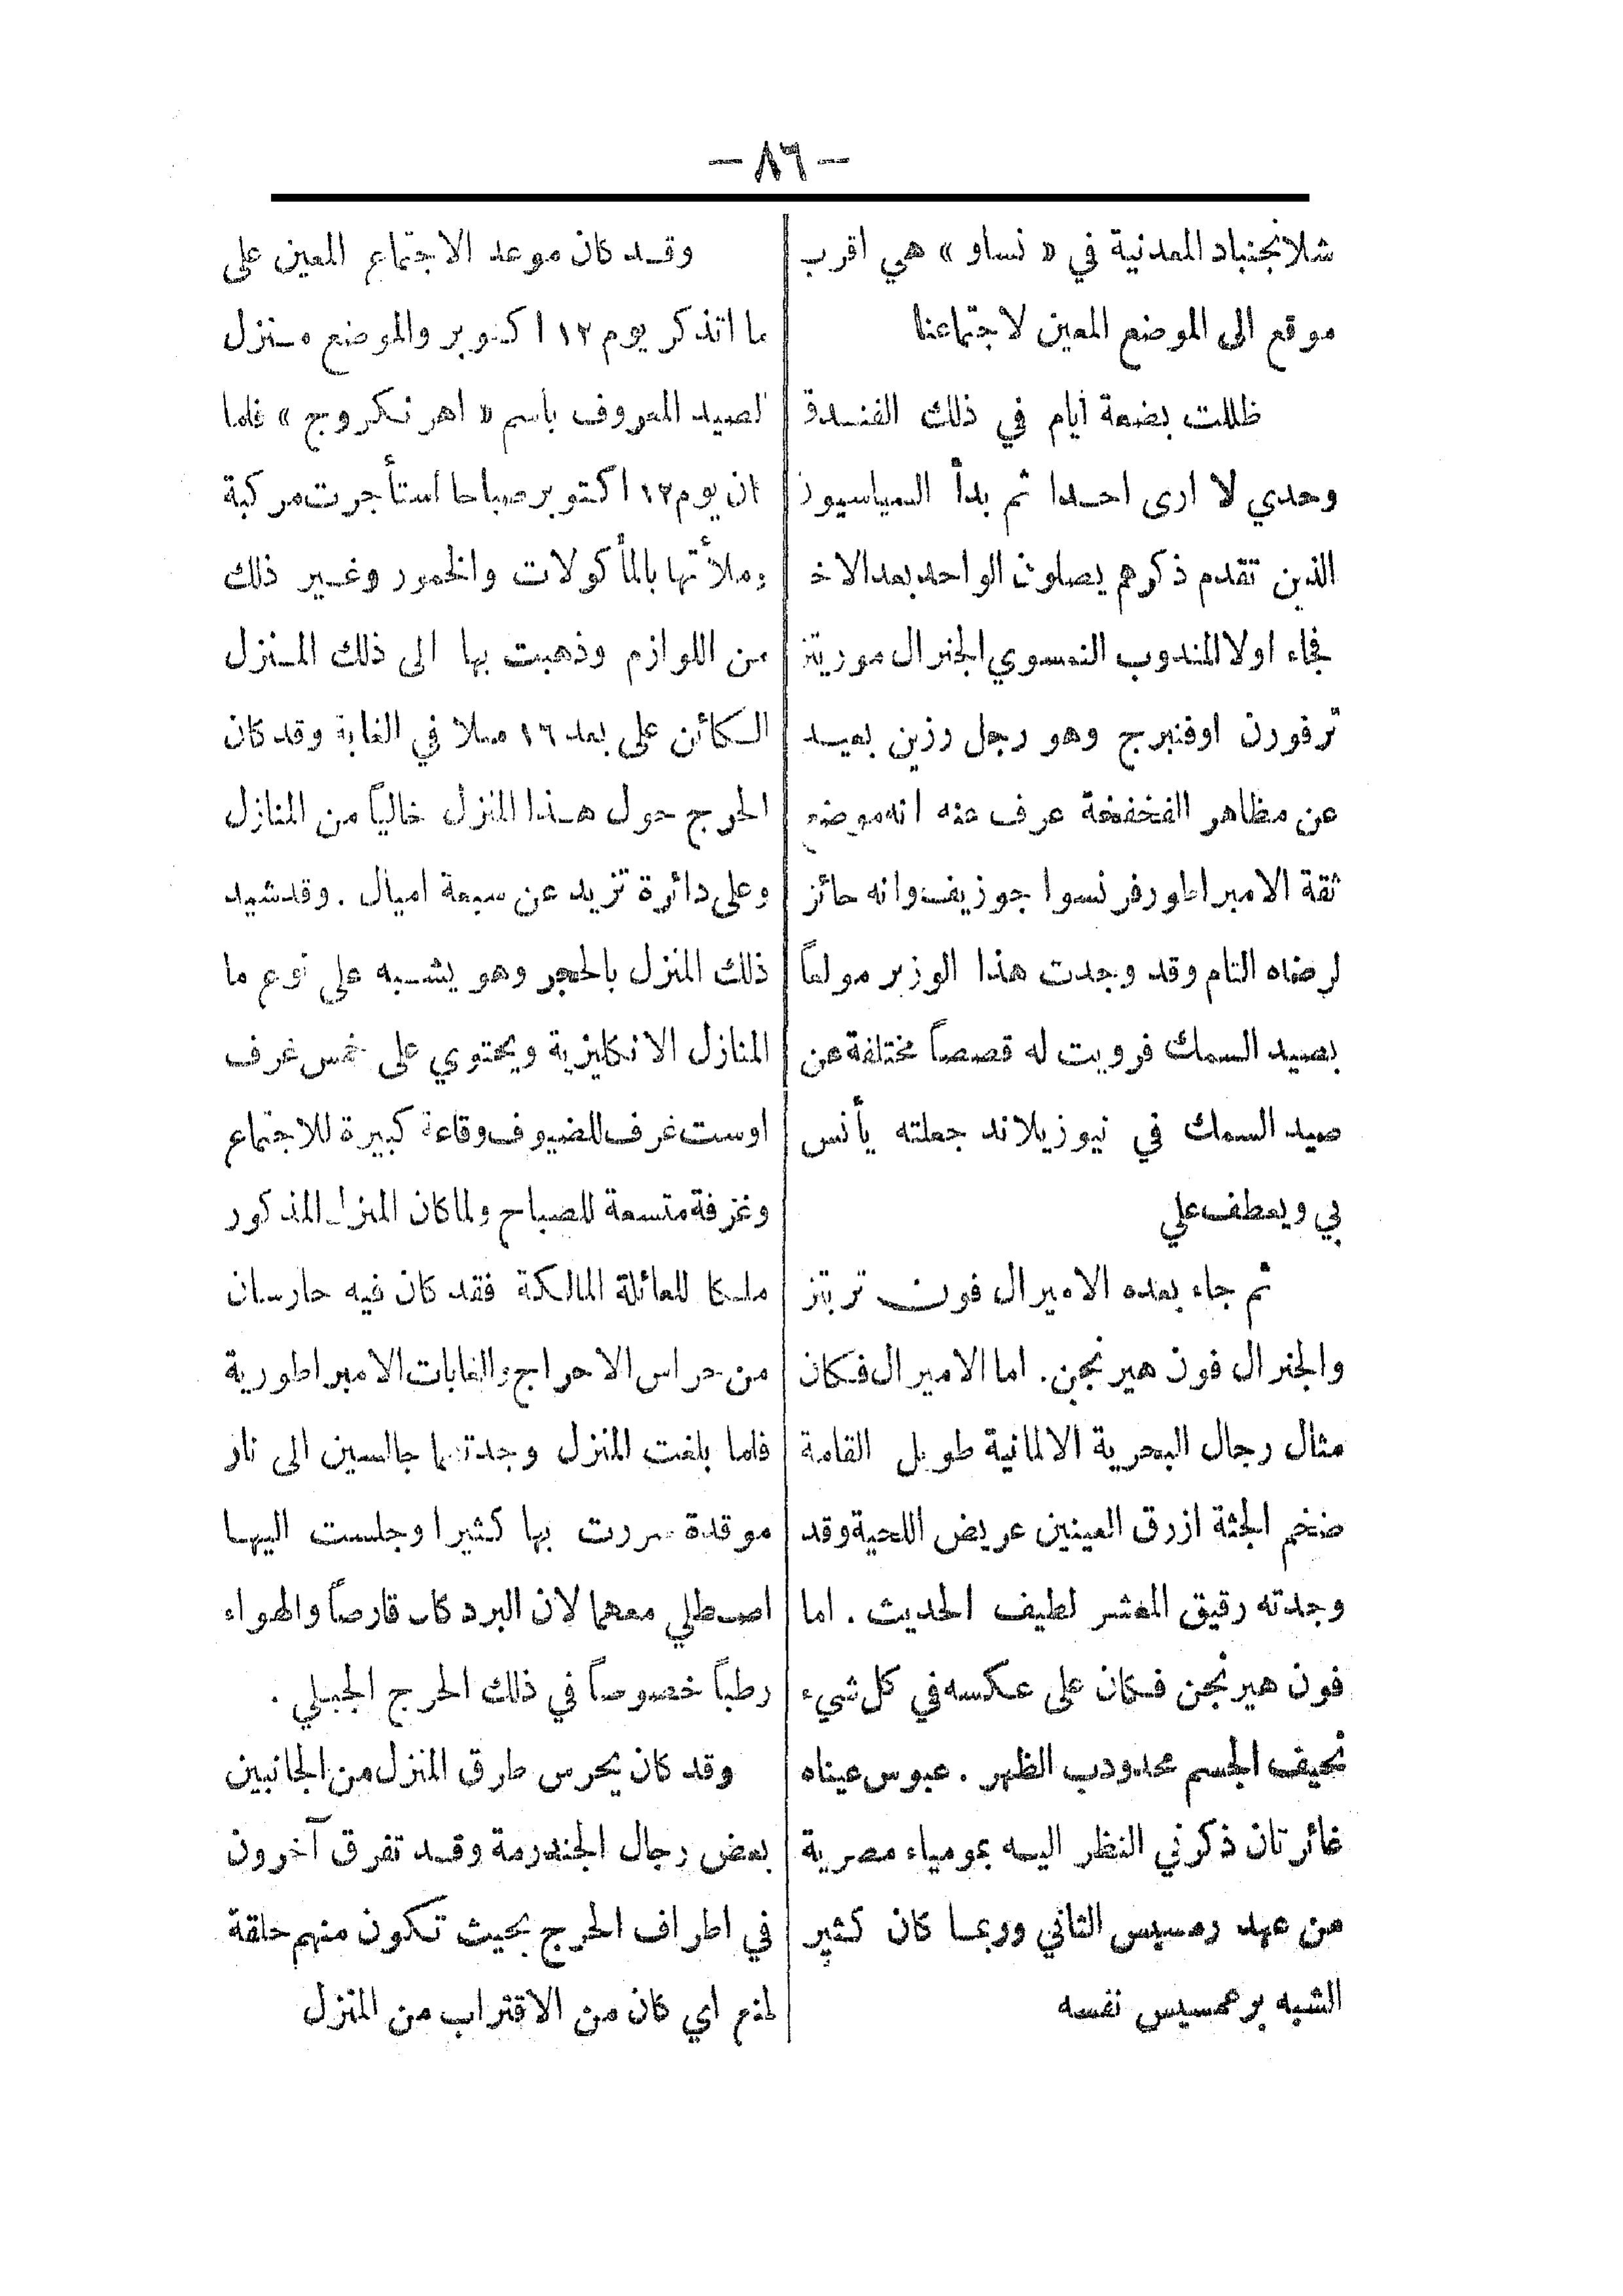 — ٨٦ —
شلانجنباد المعدنية في « نساو » هي اقرب
موقع الى الموضع المعين لاجتماعنا
ظللت بضعة أيام في ذلك الفندق
وحدي لا ارى احدا ثم بدأ السياسيون
الذين تقدم ذكرهم يصلون الواحد بعد الاخ
فجاء اولا المندوب النمسوي الجنرال موريتز
ترفورن اوفنبرج وهو رجل رزين بعيد
عن مظاهر الفخفخة عرف عنه انه موضع
ثقة الامبراطور فرنسوا جوزيف وانه حائز
لرضاه التام وقد وجدت هذا الوزير مولعاً
بصيد السمك فرويت له قصصاً مختلفة عن
صيد السمك في نيوزيلاند جعلته يأنس
بي ويعطف علي
ثم جاء بعده الاميرال فون تربتز
والجنرال فون هيرنجن . اما الاميرال فكان
مثال رجال البحرية الالمانية طويل القامة
ضخم الجثة ازرق العينين عريض اللحية وقد
وجدته رقيق المعشر لطيف الحديث . اما
فون هيرنجن فكان على عكسه في كل شيء
نحيف الجسم محدودب الظهر . عبوس عيناه
غائرتان ذكرني النظر اليه بمومياء مصرية
من عهد رمسيس الثاني وربما كان كثير
الشبه برعمسيس نفسه
وقد كان موعد الاجتماع المعين على
ما اتذكر يوم ١٢ اكتوبر والموضع منزل
الصيد المعروف باسم « اهرنكروج » فلما
ان يوم ١٢ اكتوبر صباحا استأجرت مركبة
وملأتها بالمأكولات والخمور وغير ذلك
من اللوازم وذهبت بها الى ذلك المنزل
الكائن على بعد ١٦ ميلا في الغابة وقد كان
الحرج حول هذا المنزل خالياً من المنازل
وعلى دائرة تزيد عن سبعة اميال . وقد شيد
ذلك المنزل بالحجر وهو يشبه على نوع ما
المنازل الانكليزية ويحتوي على خمس غرف
اوست غرف للضيوف وقاعة كبيرة للاجتماع
وغرفة متسعة للصباح ولما كان المنزل المذكور
ملكا للعائلة المالكة فقد كان فيه حارسان
من حراس الاحراج والغابات الامبراطورية
فلما بلغت المنزل وجدتهما جالسين الى نار
موقدة سررت بها كثيرا وجلست اليها
اصطلي معهما لان البرد كان قارصاً والهواء
رطباً خصوصاً في ذلك الحرج الجبلي .
وقد كان يحرس طرق المنزل من الجانبين
بعض رجال الجندرمة وقد تفرق آخرون
في اطراف الحرج بحيث تكون منهم حلقة
لمنع اي كان من الاقتراب من المنزل